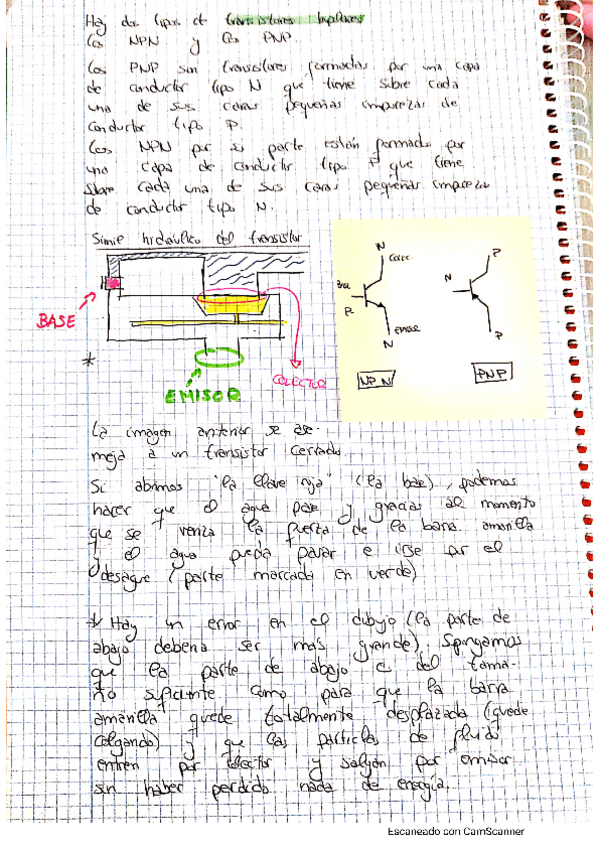 Hay dos tipos de transistores bipolares
Los NPN y los PNP
Los PNP son transistores formados por una capa
de conductor tipo N que tiene sobre cada
una de sus caras pequeñas impurezas de
conductor tipo P.
Los NPN por su parte están formado por
una capa de conductor tipo P que tiene
sobre cada una de sus caras pequeñas impurezas
de conductor tipo N.
Simil hidráulico del transistor
BASE
*
EMISOR
COLECTOR
N
Base
P
N
NPN
P
N
P
PNP
La imagen anterior se ase-
meja a un transistor cerrado.
Si abrimos "la llave roja" (la base), podemos
hacer que el agua pase y gracias al momento
que se venza la fuerza de la barra amarilla
y el agua pueda pasar e irse por el
desague (parte marcada en verde)
* Hay un error en el dibujo (la parte de
abajo debería ser mas grande). Spongamos
que la parte de abajo es del tama-
ño suficiente como para que la barra
amarilla quede totalmente desplazada (quede
colgando) y que las particulas de fluido
entren por colector y salgan por emisor
sin haber perdido nada de energía.
Escaneado con CamScanner